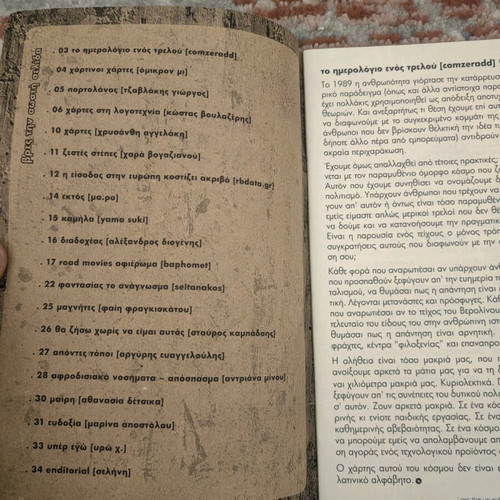 βρες την σωστή σελίδα
. 03 το ημερολόγιο ενός τρελού [comzeradd]
. 04 χάρτινοι χάρτες [όμικρον μι]
. 05 πορτολάνος [τζαβλάκης γιώργος]
. 06 χάρτες στη λογοτεχνία [κώστας βουλαζέρης]
. 10 χάρτης [χρυσάνθη αγγελάκη]
. 11 ζεστές στέπες [χαρά βογαζιανού]
. 12 η είσοδος στην ευρώπη κοστίζει ακριβά [rbdata.gr]
. 14 εκτός [μα.ρο]
. 15 καμήλα [yama suki]
. 16 διαδοχέας [αλέξανδρος διογένης]
. 17 road movies αφιέρωμα [baphomet]
. 22 φαντασίας το ανάγνωσμα [seitanakos]
. 25 μαγνήτες [φαίη φραγκισκάτου]
. 26 θα ζήσω χωρίς να είμαι αυτός [σταύρος καμπάδαης]
. 27 απόντες τόποι [αργύρης ευαγγελούλης]
. 28 αφροδισιακά νοσήματα – απόσπασμα [αντριάνα μίνου]
. 30 μαίρη [αθανασία δέτσικα]
. 31 ευδοξία [μαρίνα αποστόλου]
. 33 υπέρ εγώ [υρώ χ.]
. 34 enditorial [σελήνη]
το ημερολόγιο ενός τρελού [comzeradd]
Το 1989 η ανθρωπότητα γιόρτασε την κατάρρευ
ρικό παράδειγμα (όπως και άλλα αντίστοιχα παρα
έχει πολλάκις χρησιμοποιηθεί ως απόδειξη αποτυχ
θεωριών. Και ανεξαρτήτως τι θέση έχουμε επί αυ
να διαφωνούμε με το συγκεκριμένο κομμάτι της
άνθρωποι που δεν βρίσκουν θελκτική την ιδέα τ
δήποτε άλλο πέρα από εμπορεύματα) αντιδρούν
ακραία περιχαράκωση.
Έχουμε όμως απαλλαχθεί από τέτοιες πρακτικές;
νεται με τον παραμυθένιο όμορφο κόσμο που ζ
Αυτόν που έχουμε συνηθίσει να ονομάζουμε δ
πολιτισμό. Υπάρχουν άνθρωποι που τρέχουν να
γουν απ' αυτόν ή όντως είναι τόσο παραμυθέν
εμείς είμαστε απλώς μερικοί τρελοί που δεν θέ
να δούμε και να κατανοήσουμε την πραγματικ
Είναι η παρουσία ενός τείχους ο μόνος τρόπ
συγκρατήσεις αυτούς που διαφωνούν με την
ση σου;
Κάθε φορά που αναρωτιέσαι αν υπάρχουν άνθ
που προσπαθούν ξεφύγουν απ' την ευημερία το
ταλισμού, να θυμάσαι πως η απάντηση είναι
τική. Λέγονται μετανάστες και πρόσφυγες. Κάθ
που αναρωτιέσαι αν το τείχος του Βερολίνου
τελευταίο του είδους του στην ανθρώπινη ιστ
θυμάσαι πως η απάντηση είναι αρνητική.
φράχτες, κέντρα "φιλοξενίας" και επαναπρο
Η αλήθεια είναι τόσο μακριά μας, που
ανοίξουμε αρκετά τα μάτια μας για να τη δ
ναι χιλιόμετρα μακριά μας. Κυριολεκτικά.
ξεφύγουν απ' τις συνέπειες του δυτικού πολι
σ' αυτόν. Ζουν αρκετά μακριά. Σε ένα κόσ
ρικής κι ενίοτε παιδικής εργασίας. Σε έναν
καθημερινής αβεβαιότητας. Σε ένα κόσμο
να μπορούμε εμείς να απολαμβάνουμε απ
ση αγοράς ενός τεχνολογικού προϊόντος
Ο χάρτης αυτού του κόσμου δεν είναι
λατινικό αλφάβητο.